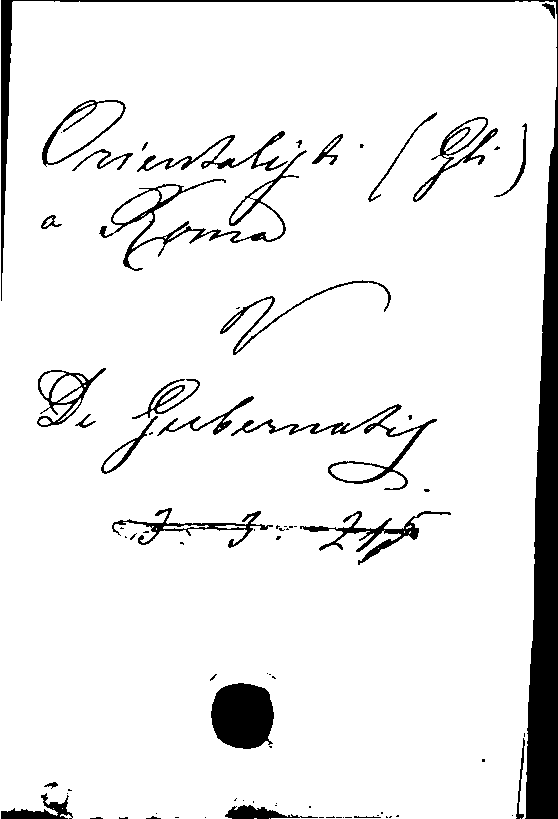 Orientalisti (Gli)
a Roma
V
De Gubernatis
3. 3. 215